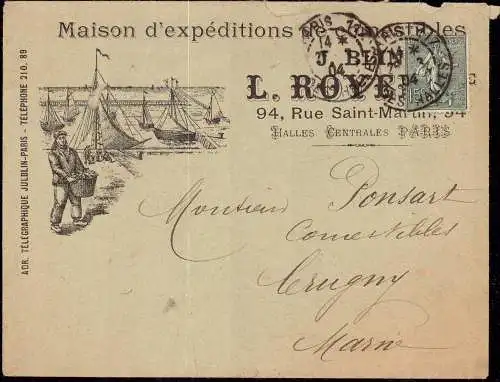 Maison d'expéditions de Comestibles
J. BLIN
L. ROYER
94, Rue Saint-Martin, 94
HALLES CENTRALES PARIS
ADR. TÉLÉGRAPHIQUE JULBLIN-PARIS - TÉLÉPHONE 210.89
PARIS
14
04
15
Monsieur Ponsart
Comestibles
Crugny
Marne